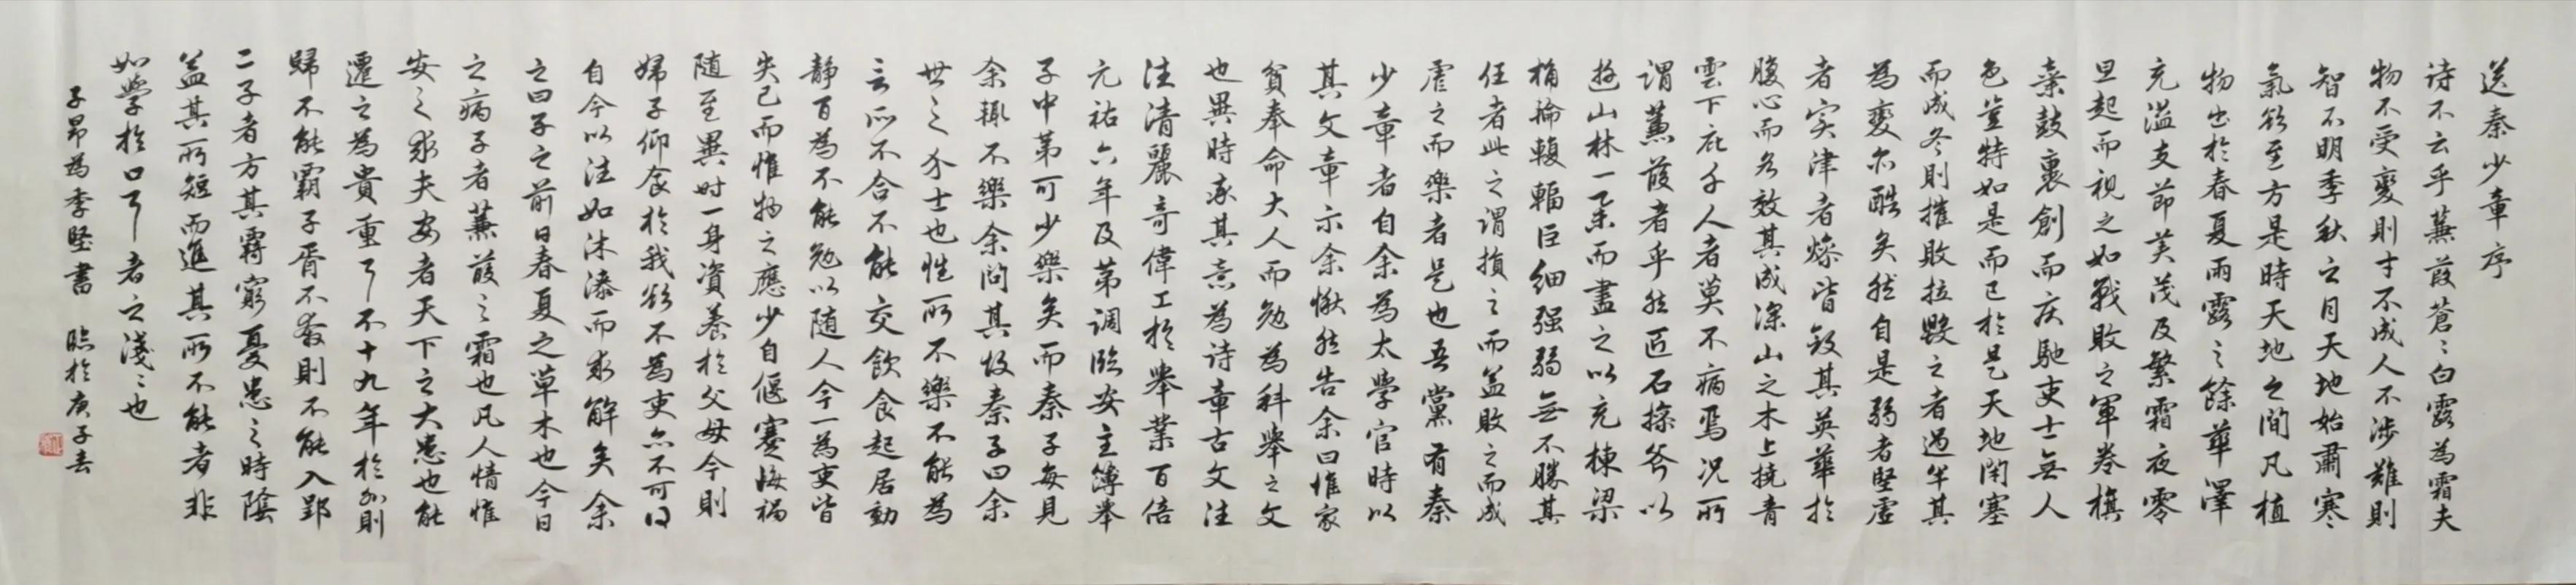 送秦少章序
诗不云乎蒹葭蒼々白露為霜夫
物不受變則才不成人不涉難則
智不明季秋之月天地始肅寒
氣欲至方是時天地之間凡植
物出於春夏雨露之餘華澤
充溢支節美茂及繁霜夜零
旦起而視之如戰敗之軍卷旗
棄鼓裹創而馳吏士無人
色豈特如是而已於是天地閉塞
而成冬則摧敗拉毀之者過半其
為變亦酷矣然自是弱者堅虛
者实津者燥皆斂其英華於
腹心而各效其成深山之木上撓青
雲下庇千人者莫不病焉况所
謂蒹葭者乎然匠石操斧以
遊山林一举而盡之以充棟梁
桷輪輹輻巨細强弱無不勝其
任者此之謂損之而益敗之而成
虐之而樂者是也吾黨有秦
少章者自余為太學官時以
其文章示余愀然告余曰惟家
貧奉命大人而勉為科舉之文
也異時率其意為诗章古文往
往清麗奇偉工於舉業百倍
元祐六年及第调臨安主簿举
子中第可少樂矣而秦子每見
余輒不樂余问其故秦子曰余
世之介士也性所不樂不能為
言所不合不能交飲食起居動
静百為不能勉以随人今一為吏皆
失己而惟物之應少自偃蹇悔禍
随至異时一身資養於父母今則
婦子仰食於我欲不為吏亦不可得
自今以往如沐漆而求解矣余
之曰子之前日春夏之草木也今日
之病子者蒹葭之霜也凡人情惟
安之求夫安者天下之大患也能
遷之為貴重耳不十九年於外則
歸不能霸子胥不奔則不能入郢
二子者方其羁窮憂患之時陰
益其所短而進其所不能者非
如學於口耳者之淺々也
子昂為季堅書 臨於庚子春